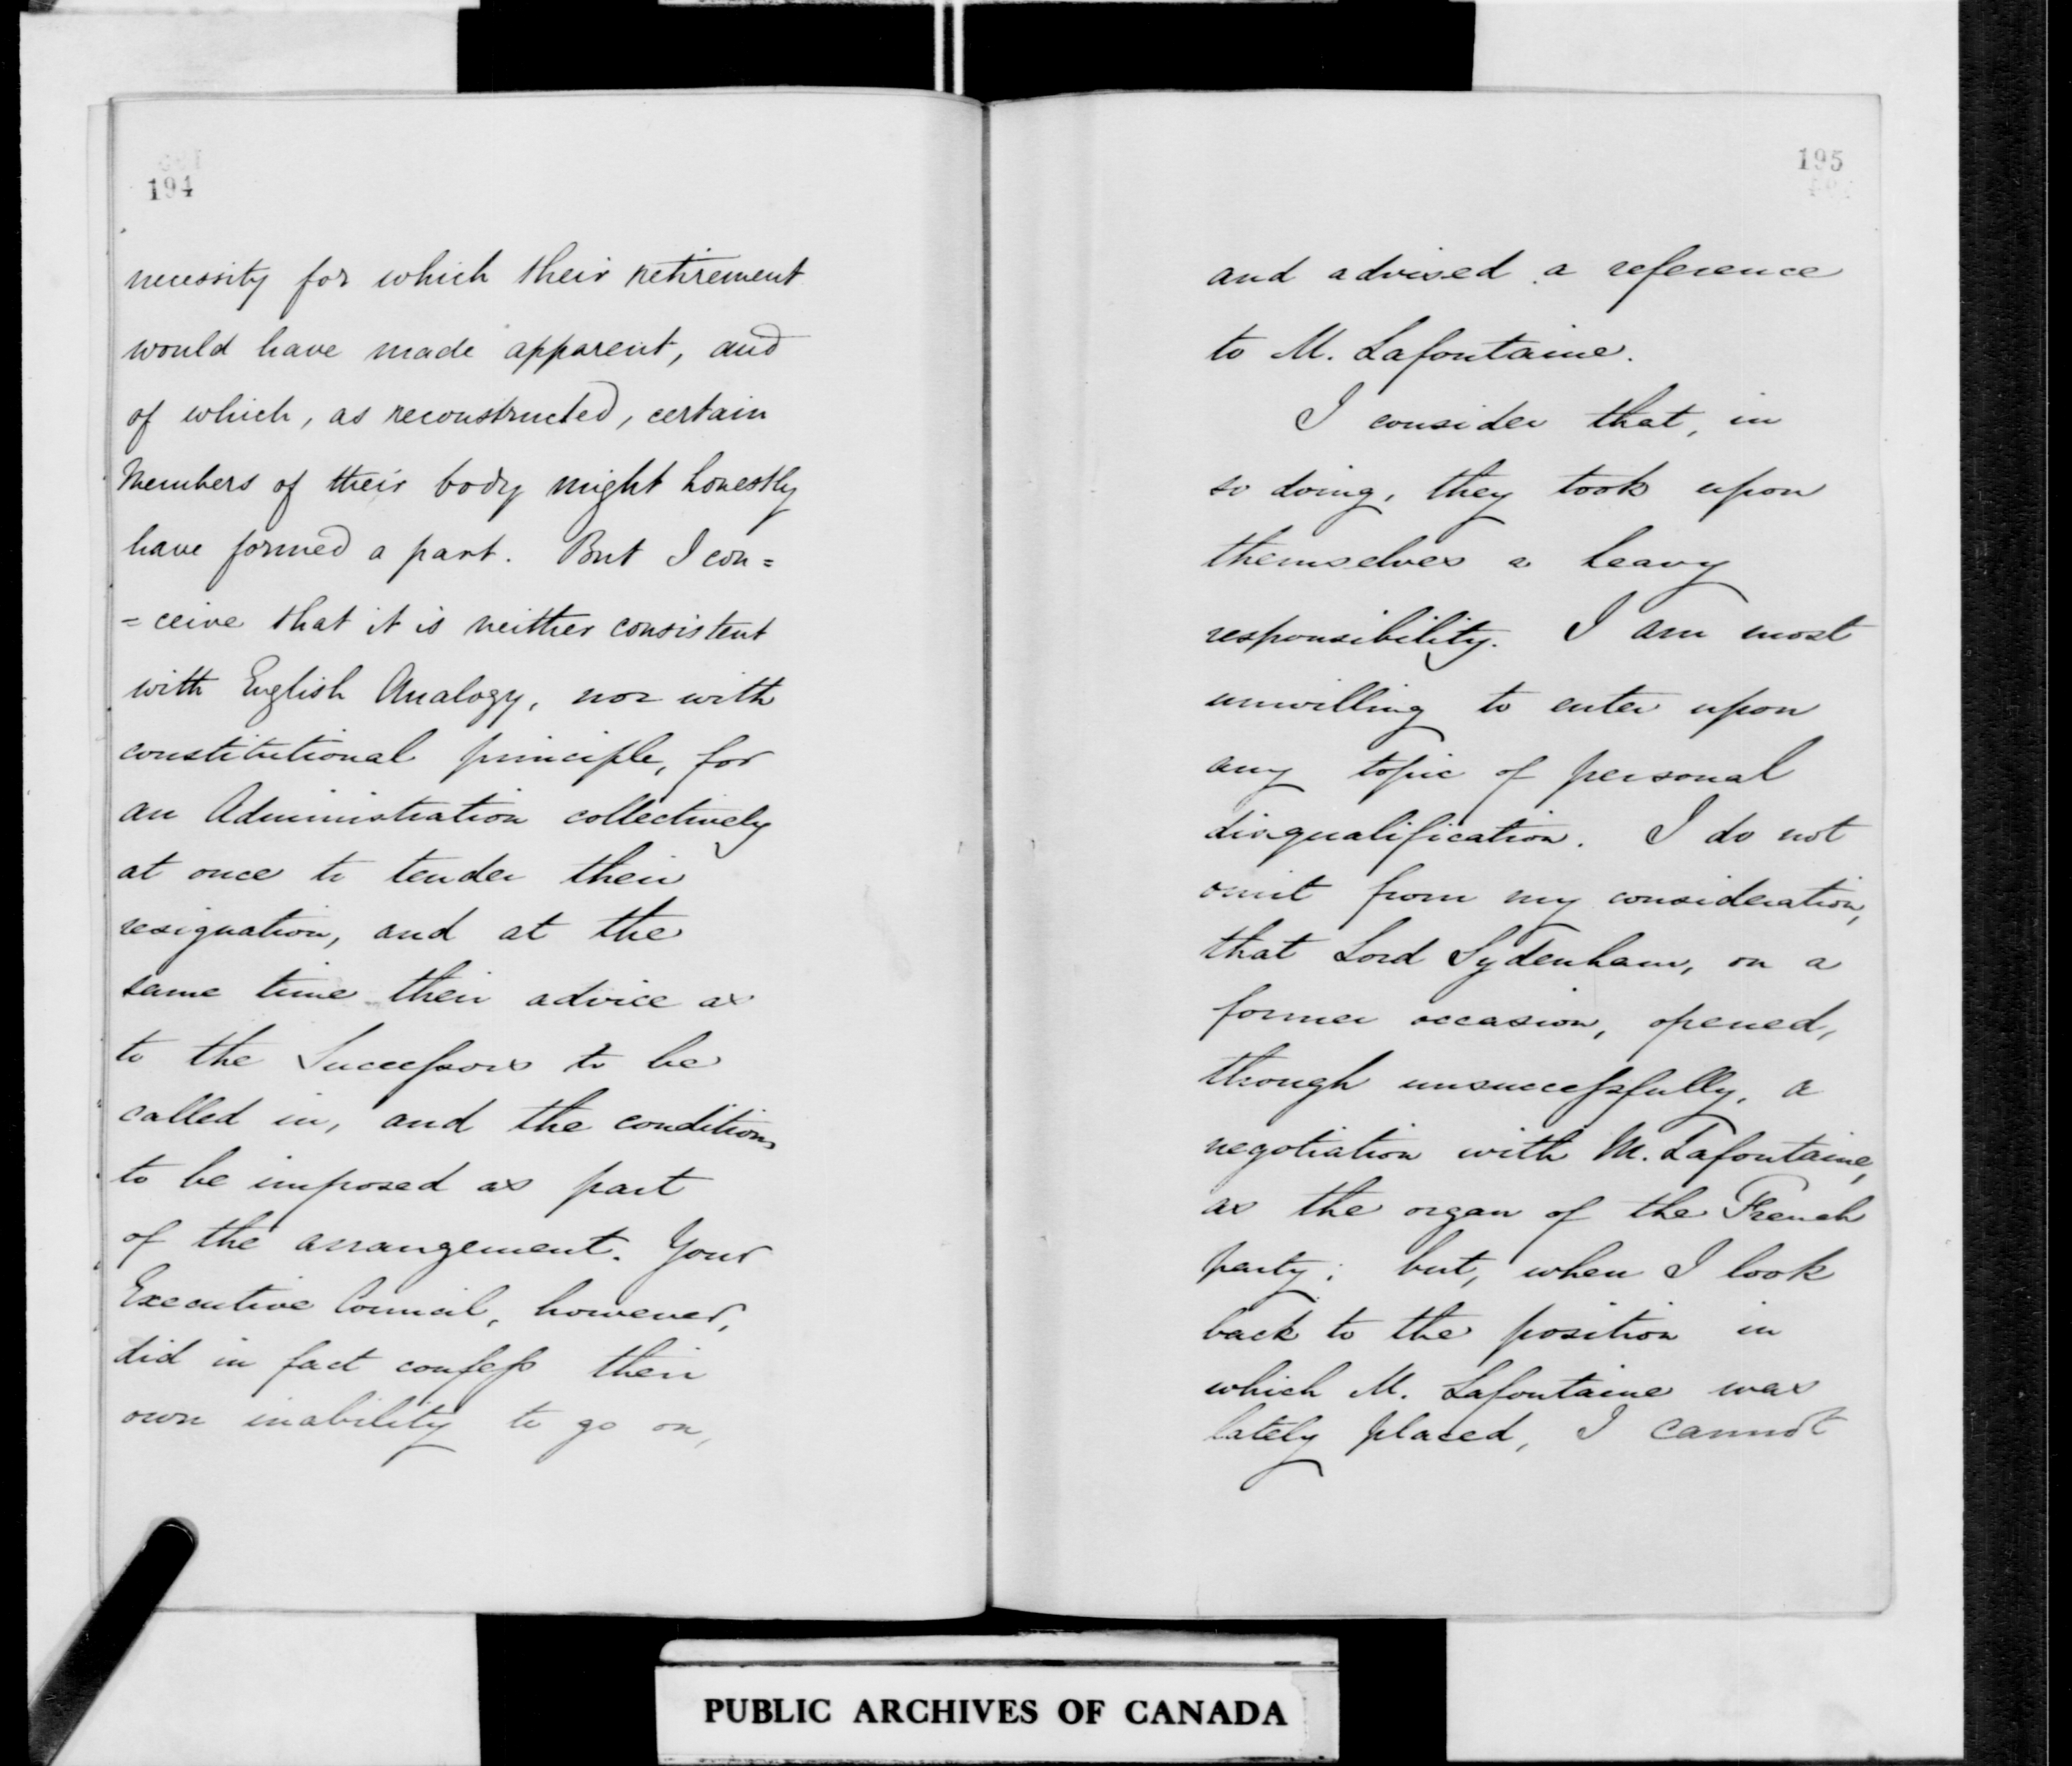 194
necessity for which their retirement
would have made apparent, and
of which, as reconstructed, certain
Members of their body might honestly
have formed a part. But I con=
=ceive that it is neither consistent
with English Analogy, nor with
constitutional principle, for
an Administration collectively
at once to tender their
resignation, and at the
same time their advice as
to the Successors to be
called in, and the conditions
to be imposed as part
of the arrangement. Your
Executive Council, however,
did in fact confess their
own inability to go on,
195
and advised a reference
to M. Lafontaine.
I consider that, in
so doing, they took upon
themselves a heavy
responsibility. I am most
unwilling to enter upon
any topic of personal
disqualification. I do not
omit from my consideration,
that Lord Sydenham, on a
former occasion, opened,
though unsuccessfully, a
negotiation with M. Lafontaine,
as the organ of the French
party; but, when I look
back to the position in
which M. Lafontaine was
lately placed, I cannot
PUBLIC ARCHIVES OF CANADA